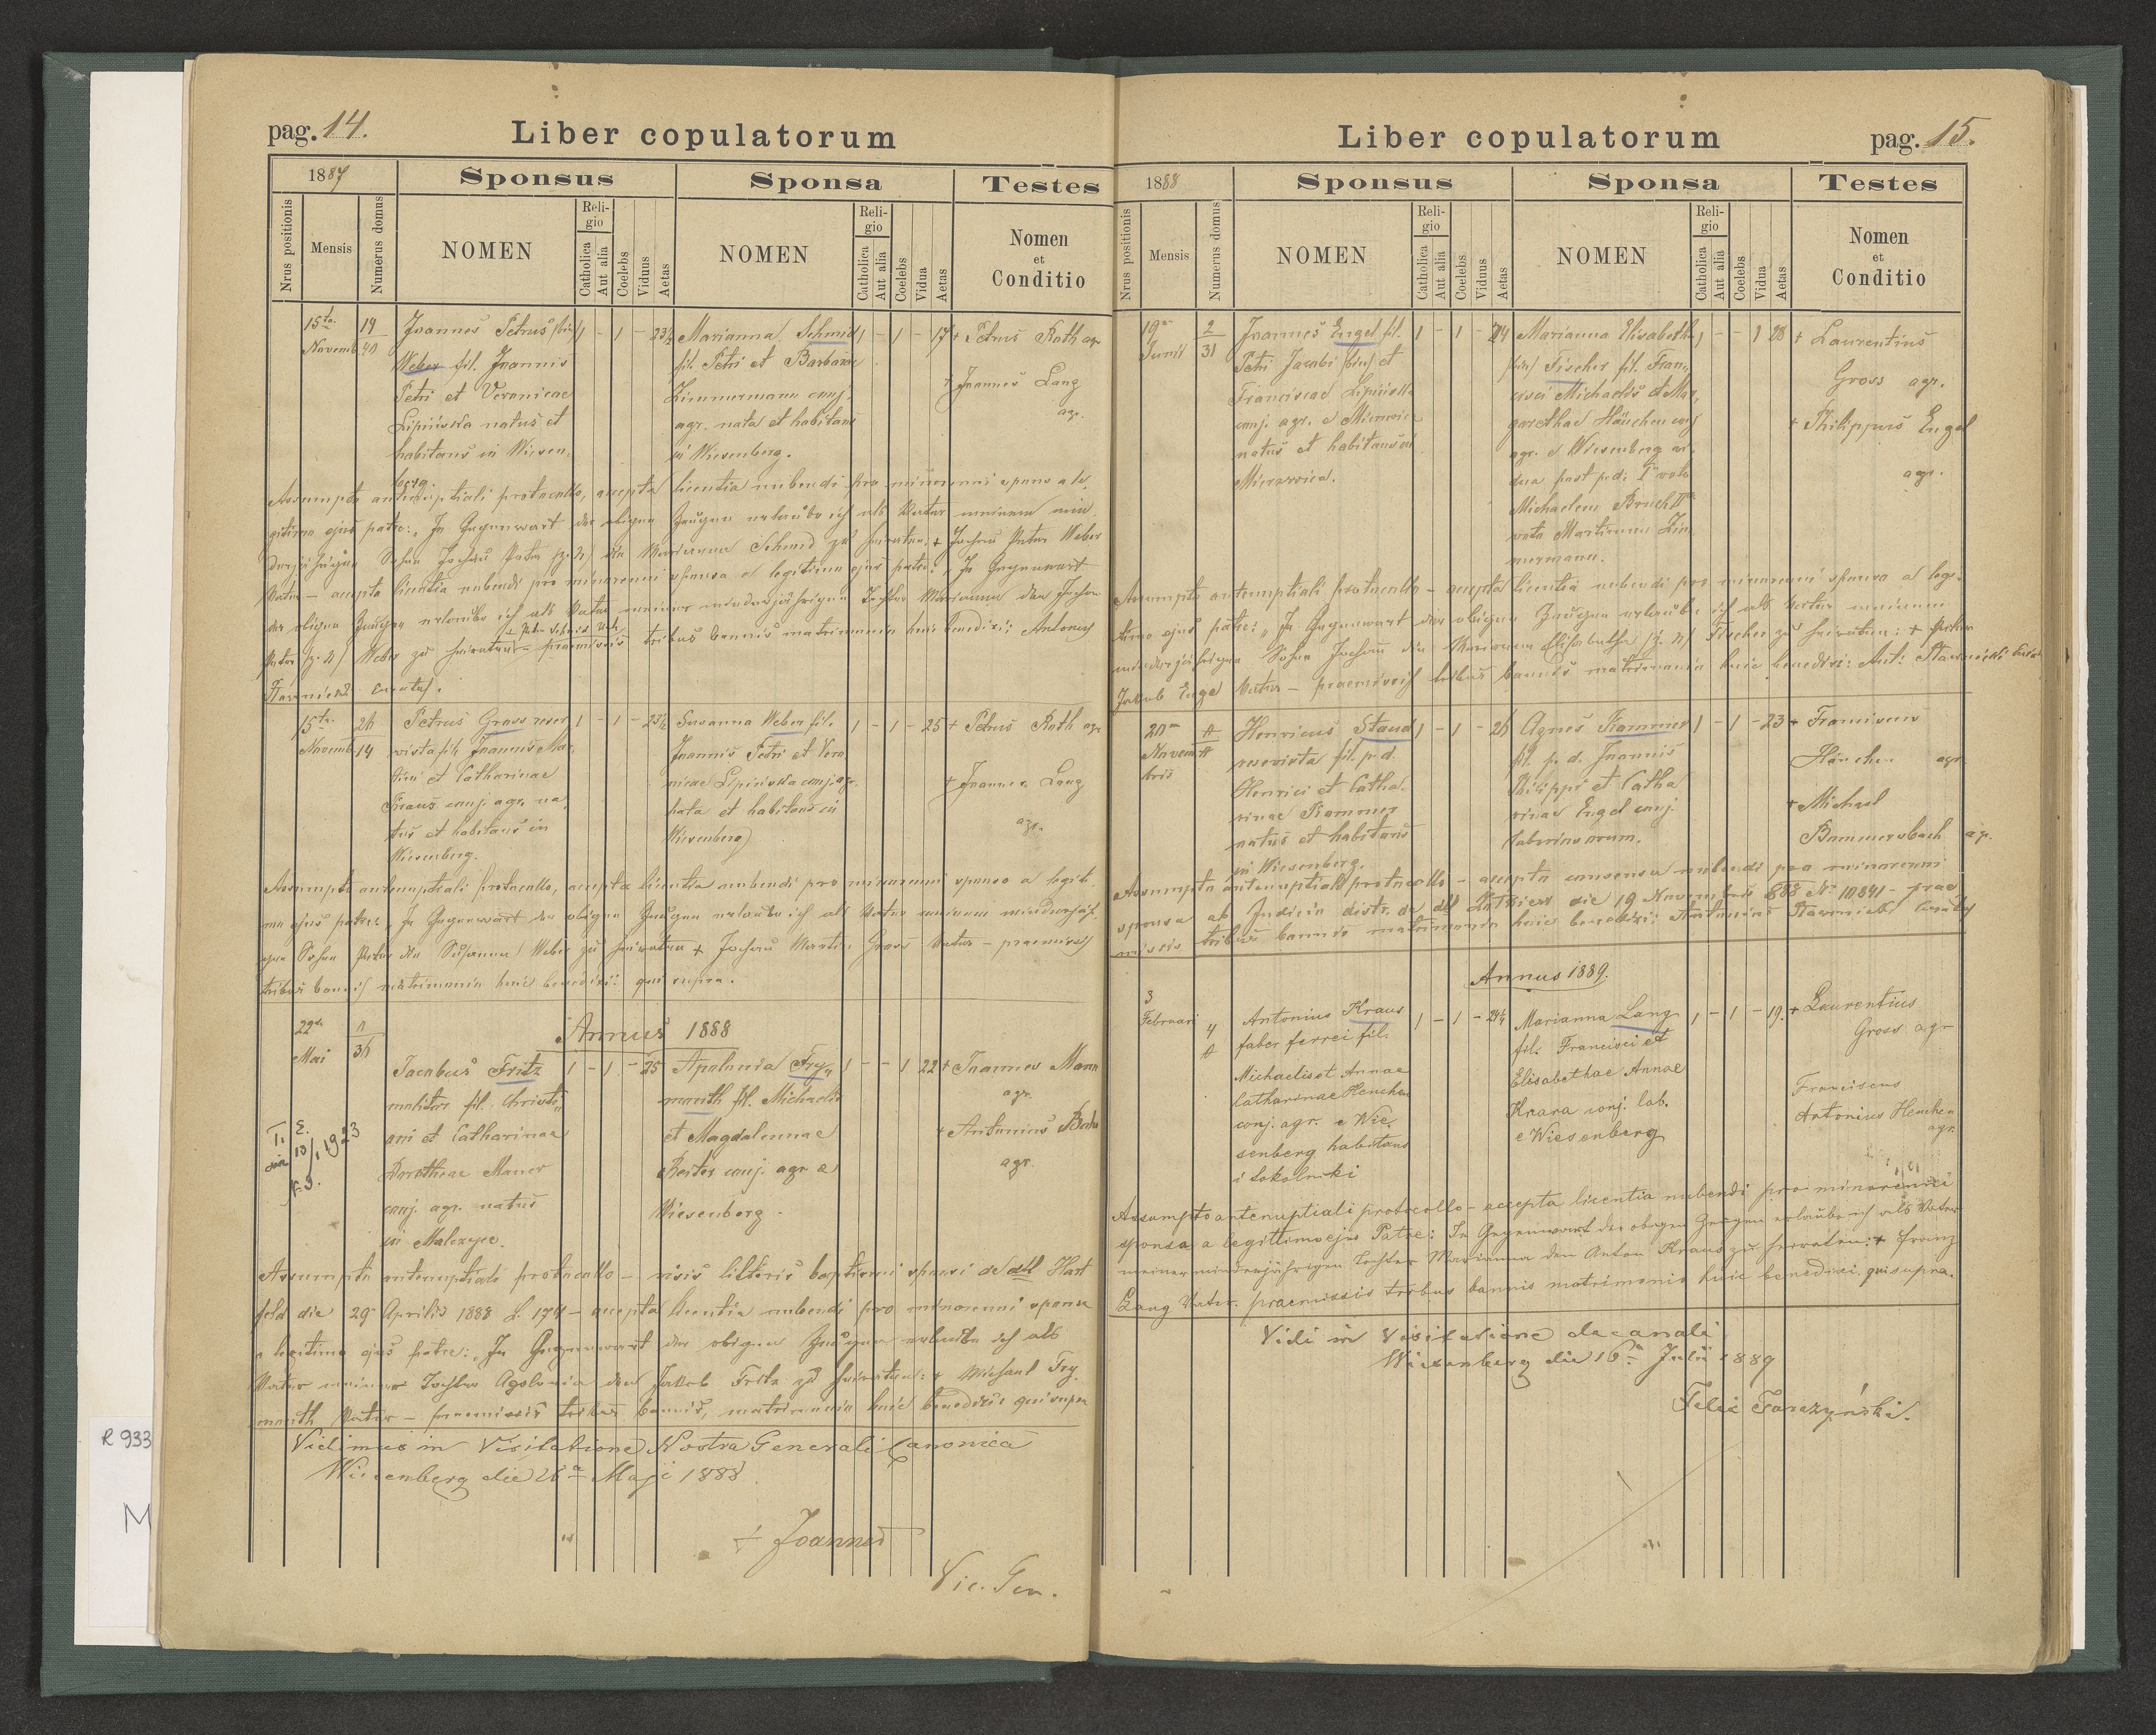 pag. 14.
Liber copulatorum
1887
Sponsus
Sponsa
Testes
Nrus positionis
Mensis
Numerus domus
NOMEN
Religio
Catholica
Aut alia
Coelebs
Viduus
Aetas
NOMEN
Religio
Catholica
Aut alia
Coelebs
Vidua
Aetas
Nomen
et
Conditio
15ta 19 Joannes Petrus (bin) 1 - 1 - 23½ Marianna Schmid 1 - 1 - 17 + Petrus Roth agr
Novemb 40 Weber fil. Joannis fil. Petri et Barbarae
Petri et Veronicae Zimmermann conj. + Joannes Lang
Lipińska natus et agr. nata et habitans agr.
habitans in Wiesen- in Wiesenberg.
berg.
Assumpto antenuptiali protocollo, accepta licentia nubendi pro minorenni sponso a le-
gitimo ejus patre: „In Gegenwart der obigen Zeugen erlaube ich als Vater meinem min-
derjährigen Sohne Johann Peter (z. N) die Marianna Schmid zu heiraten: + Johann Peter Weber
Vater - accepta licentia nubendi pro minorenni sponsa a legitimo ejus patre: „In Gegenwart
der obigen Zeugen erlaube ich als Vater meiner minderjährigen Tochter Marianna den Johann
Peter (z. N) Weber zu heiraten + Peter Schmid Vat. - praemissis tribus bannis matrimonio huic benedixi: Antonius
Stawnicki Curatus.
15ta 26 Petrus Gross reser- 1 - 1 - 23½ Susanna Weber fil. 1 - 1 - 25 + Petrus Roth agr
Novemb 14 vista fil. Joannis Mar- Joannis Petri et Vero-
tini et Catharinae nicae Lipińska conj. agr. + Joannes Lang
Kraus conj. agr. na- nata et habitans in agr.
tus et habitans in Wiesenberg
Wiesenberg.
Assumpto antenuptiali protocollo, accepta licentia nubendi pro minorenni sponso a legiti-
mo ejus patre: „In Gegenwart der obigen Zeugen erlaube ich als Vater meinem minderjähri-
gen Sohne Peter die Susanna Weber zu heiraten + Johann Martin Gross Vater - praemissis
tribus bannis matrimonio huic benedixi: qui supra.
Annus 1888
22da
Mai 36 Jacobus Fritz 1 - 1 - 25 Apolonia Fry- 1 - - 1 22 + Joannes Mann
molitor fil. Christi- mauth fil. Michaelis agr.
ani et Catharinae et Magdalennae + Antonius
Dorotheae Mauer conj. agr. e agr.
conj. agr. natus Wiesenberg.
in Malczyce.
Assumpto antenuptiali protocollo - visis litteris baptismi sponsi de dtto Hart-
feld die 29 Aprilis 1888 L. 174 - accepta licentia nubendi pro minorenni sponsa
a legitimo ejus patre: „In Gegenwart der obigen Zeugen erlaube ich als
Vater meiner Tochter Apolonia den Jakob Fritz zu heiraten: + Michael Fry-
mauth Vater - praemissis tribus bannis, matrimonio huic benedixi: qui supra
Vidimus in Visitatione Nostra Generali Canonica
Wiesenberg die 26a Maji 1888.
+ Joannes
Vic. Gen.
R 933
M
Liber copulatorum
pag. 15.
1888
Sponsus
Sponsa
Testes
Nrus positionis
Mensis
Numerus domus
NOMEN
Religio
Catholica
Aut alia
Coelebs
Viduus
Aetas
NOMEN
Religio
Catholica
Aut alia
Coelebs
Vidua
Aetas
Nomen
et
Conditio
19a 2 Joannes Engel fil. 1 - 1 - 24 Marianna Elisabetha 1 - - 1 28 + Laurentius
Junii 31 Petri Jacobi (bin) et (bin) Fischer fil. Fran- Gross agr.
Franciscae Lipińska cisci Michaelis et Mar-
conj. agr. e Mierzwica garethae Hänchen conj. + Philippus Engel
natus et habitans in agr. e Wiesenberg vi- agr.
Mierzwica. dua post p. d. Io voto
Michaelem Bruch IIo
voto Martinum Zim-
mermann.
Assumpto antenuptiali protocollo - accepta licentia nubendi pro minorenni sponso a legi-
timo ejus patre: „In Gegenwart der obigen Zeugen erlaube ich als Vater meinem
minderjährigen Sohne Johann die Marianna Elisabetha (z. N) Fischer zu heiraten: + Peter
Jakob Engel Vater - praemissis tribus bannis matrimonio huic benedixi: Ant: Stawnicki Curat
20a Henricus Staud 1 - 1 - 26 Agnes Krammer 1 - 1 - 23 + Franciscus
Novem- reservista fil. p. d. fil. p. d. Joannis Hänchen agr
bris Henrici et Catha- Philippi et Catha-
rinae Krammer rinae Engel conj. + Michael
natus et habitans laborinorum. Bommersbach agr.
in Wiesenberg.
Assumpto antenuptiali protocollo - accepto consensu nubendi pro minorenni
sponsa ab Judicio distr. de dtto Żółkiew die 19 Novembris 888 No 10841 - prae-
missis tribus bannis matrimonio huic benedixi: Antonius Stawnicki Curatus
Annus 1889.
3
Februari 4 Antonius Kraus 1 - 1 - 24¼ Marianna Lang 1 - 1 - 19. + Laurentius
faber ferrei fil. fil. Francisci et Gross agr
Michaelis et Annae Elisabethae Annae
Catharinae Henchen Krara conj. lab. Franciscus
conj. agr. e Wie- e Wiesenberg Antonius Henchen
senberg habitans agr.
i Sokolniki
Assumpto antenuptiali protocollo - accepta licentia nubendi pro minorenni
sponsa a legittimo ejus Patre: In Gegenwart der obigen Zeugen erlaube ich als Vater
meiner minderjährigen Tochter Marianna den Anton Kraus zu heiraten: + Franz
Lang Vater. praemissis tribus bannis matrimonio huic benedixi. qui supra.
Vidi in visitatione decanali
Wiesenberg die 16a Julii 1889
Felix Tarczyński.